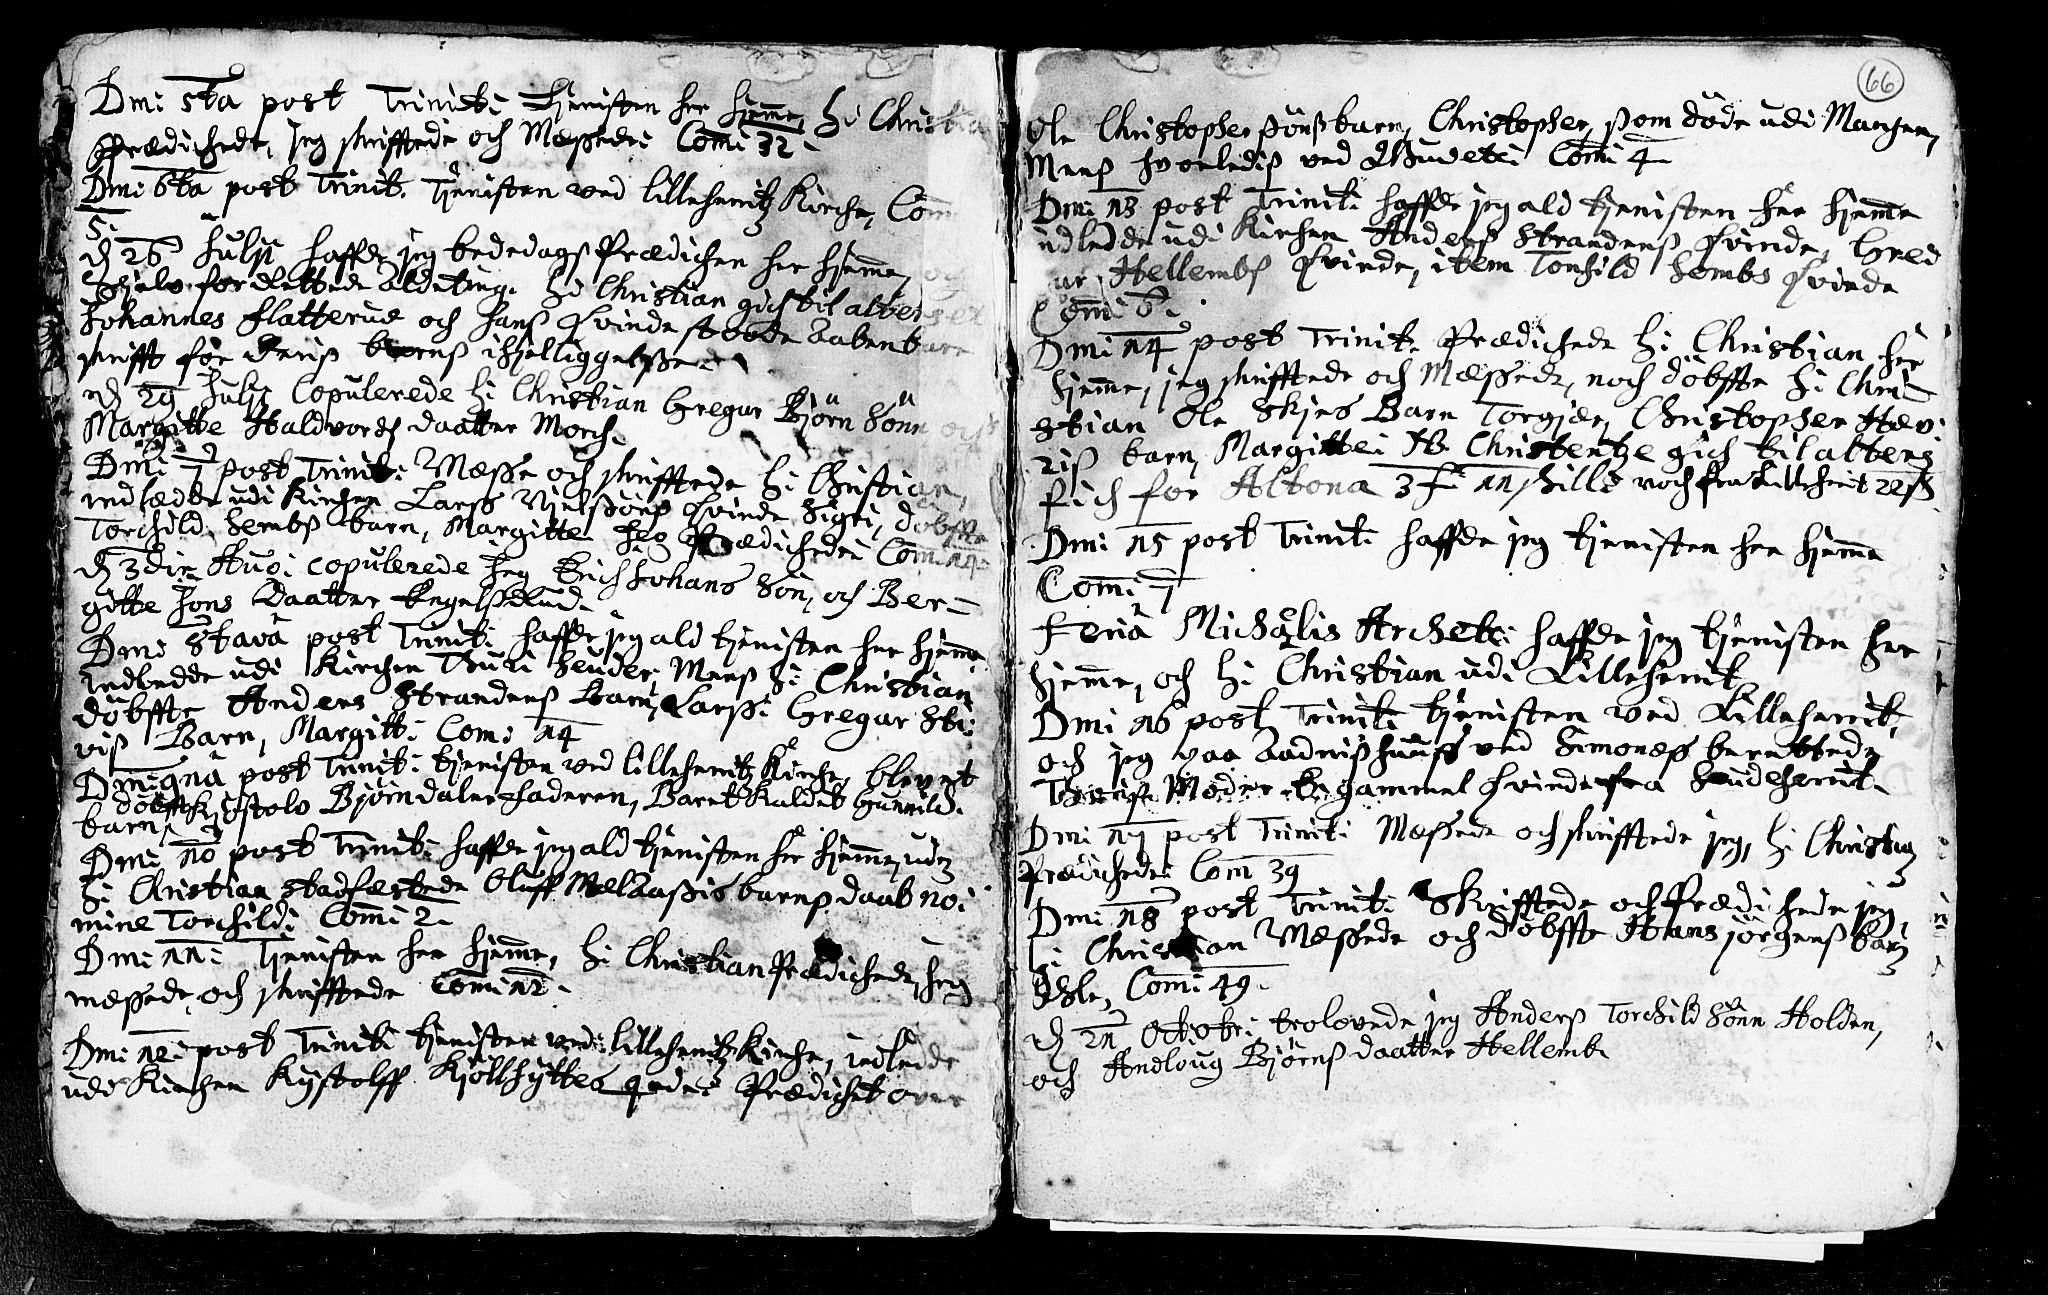 Dmi 5ta post Trinit: Tjenisten her hjemme, H: Christia
Prædichede, jeg skrifftede och Messede: Com: 32.
Dmi 6ta post Trinit. Tjenisten ved Lilleherritz Kirche, Com
5.
d 26 Julij haffde jeg bededags Prædichen her hjemme,
H: Christian gich til alters
Johannes Flatterud och hans Qvinde stode aabenbare
skrifft for deris barns ihjelliggelsse
d 29 Julij Copulerede H: Christian Gregar Bjørn Sønn och
Margitte Haldvords daatter Morch.
Dmi 7 post Trinit: Messe och skrifftede H: Christian,
indledde udi Kirchen Larss Nielssøns Qvinde Sigri, døbffte
Torchild Sembs barn, Margitte: Jeg Prædichede: Com: 14
d 3die Aug: copulerede jeg Erich Johans Søn, och Ber=
gitte Jons Daatter
Dmi 8tava post Trinit: haffde jeg ald tjenisten her hjemme
Indledde udi Kirchen Mens H: Christian
døbffte Anders Strandens Barn, Larss: Gregar Sti
vis Barn, Margitt: Com: 14
Dmi 9na post Trinit: tjenisten ved Lilleherritz Kirche, blevet
barn døbfft Kystolv Bjørndalen Faderen, Barnet kaldet Gunnild.
Dmi 10 post Trinit: haffde jeg ald tjenisten her hjemme, uden
H: Christian stadfæstede Oluff barns daab no:
mine Torchild: Com: 2.
Dmi 11: Tjenisten her hjemme, H: Christian Prædichede, jeg
messede, och skrifftede Com: 12.
Dmi 12: post Trinit: tjenisten ved Lilleherritz Kirche, indledde
udi Kirchen Kystolff Prædichet over
66
Ole Christophersønss barn, Christopher, som døde udi Marchen,
Mens Com: 4
Dmi 13 post Trinit: haffde jeg ald tjenisten her hjemme
indledde udi Kirchen Anders Strandens Qvinde, Greg
ar Hellembs Qvinde, item Torchild Sembs Qvinde
Com: 6.
Dmi 14 post Trinit. Prædichede H: Christian her
hjemme, jeg skrifftede och Messede, noch døbffte H: Chri=
stian Ole Skjes Barn Torgjer, Christopher Hæv:
ris barn, Margitte: Christentze gich til alters
fich for Altona 3 och fra Lilleherrit 22 ß
Dmi 15 post Trinit: haffde jeg tjenisten her hjemme
Com: 7
Feriâ Michaëlis Archet: haffde jeg tjenisten her
hjemme, och H: Christian udi Lilleherrit
Dmi 16 post Trinit: tjenisten ved Lilleherrit,
och jeg vaa ved
gammel Qvinde fra
Dmi 17 post Trinit: Messede och skrifftede jeg, H: Christian
Prædichede: Com 39
Dmi 18 post Trinit: Skrifftede och Prædichede jeg,
H: Christian Messede och døbffte Hans jørgens barn
Com: 49.
d 21 Octobr: trolovede jeg Anders Torchild Sønn Holden,
och Andloug Bjørns daatter Hellemb.